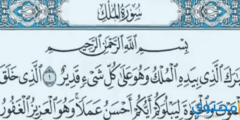 سُورَةُ المُلْكِ
بِسْمِ اللَّهِ الرَّحْمَٰنِ الرَّحِيمِ
بَرَكَ الَّذِي بِيَدِهِ الْمُلْكُ وَهُوَ عَلَىٰ كُلِّ شَيْءٍ قَدِيرٌ ١ الَّذِي خَلَقَ
وَالْحَيَوٰةَ لِيَبْلُوَكُمْ أَيُّكُمْ أَحْسَنُ عَمَلًا وَهُوَ الْعَزِيزُ الْغَفُورُ